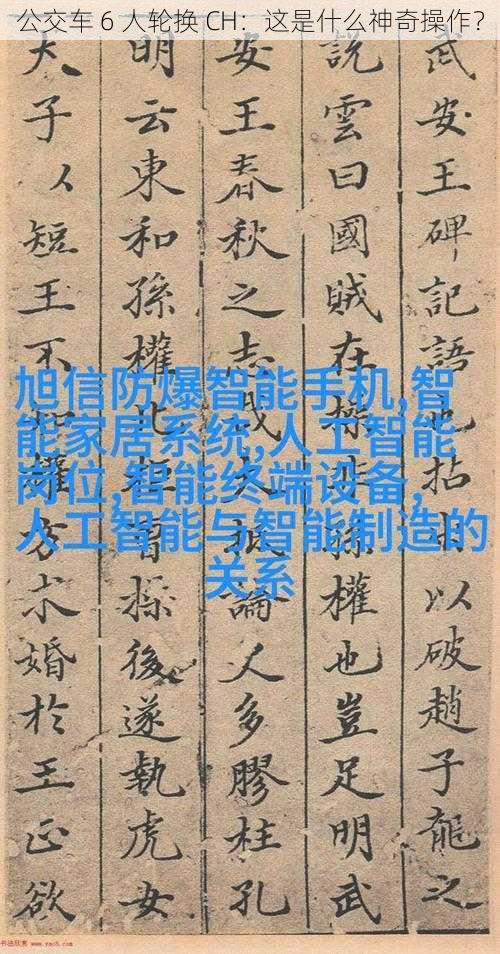 公交车 6 人轮换 CH：这是什么神奇操作？
武安王碑記語也拈以破趙子龍之
說雲曰國賊在操非孫權也豈足明武
安王春秋之志哉論人多膠柱孔
明云東和孫權北拒曹操後遂執虎女
犬子人短王不知權方求婚於王正欲
旭信防爆智能手机,智
能家居系统,人工智能
岗位,智能终端设备,
人工智能与智能制造的
关系
书法欣赏 www.yac8.com